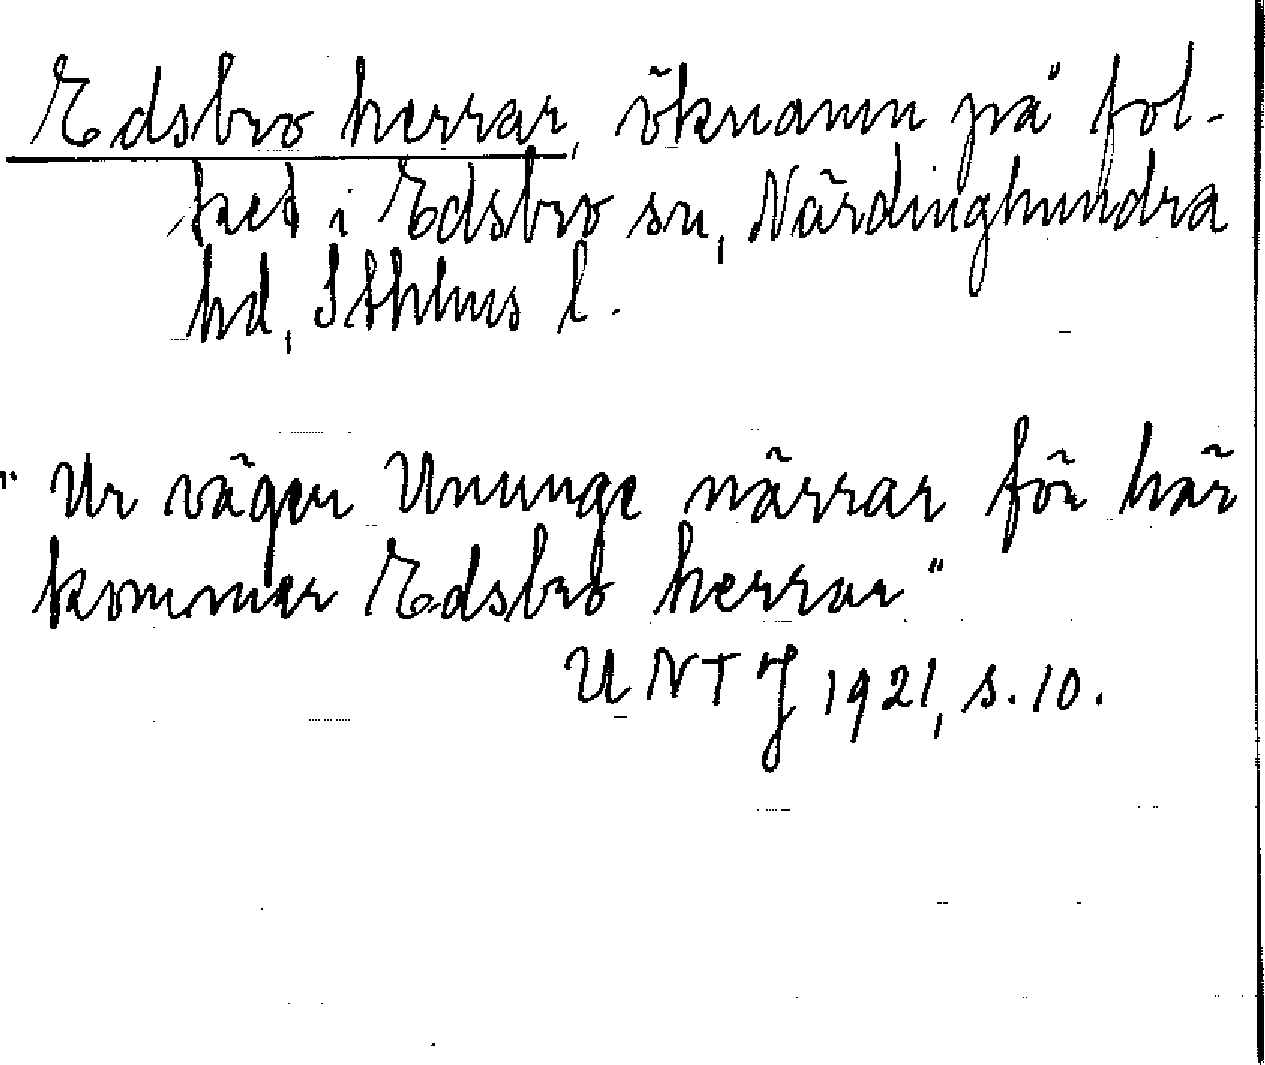 Edsbro herrar, öknamn på fol-
ket i Edsbro sn, Närdinghundra
hd, Sthlms l.
"Ur vägen Ununge närrar för här
kommer Edsbro herrar"
UNTJ 1921, s. 10.